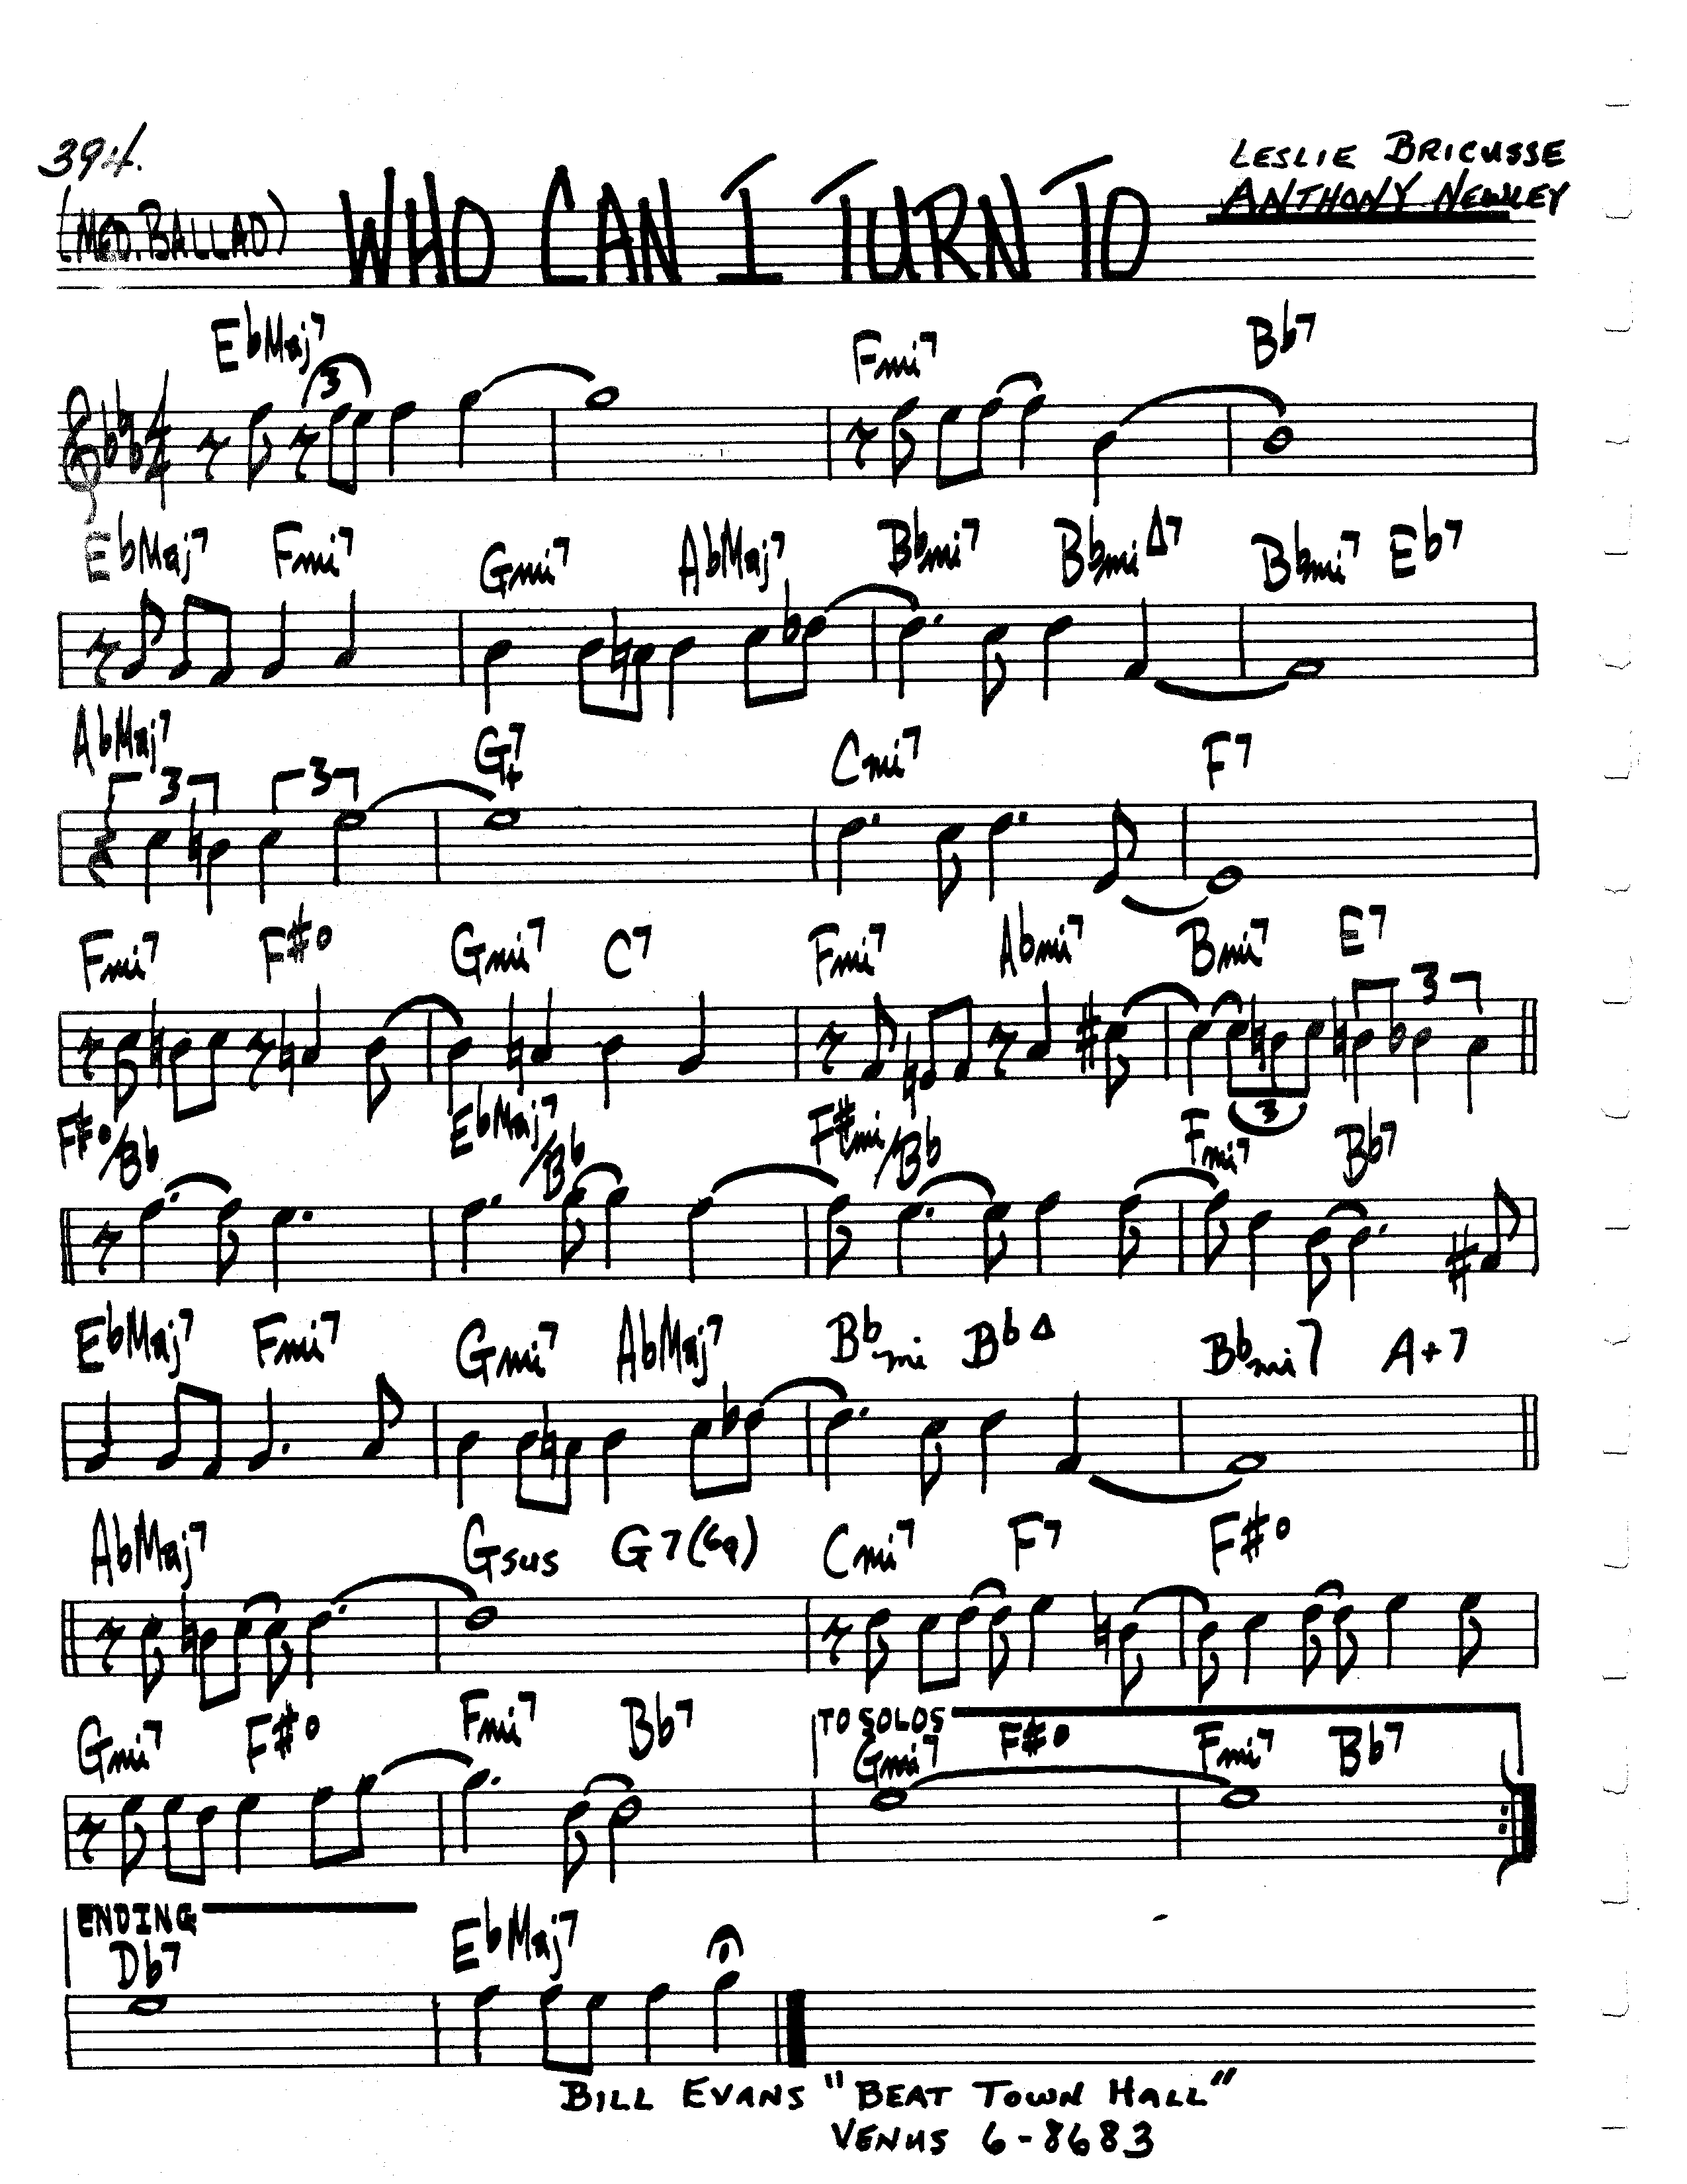 394.
LESLIE BRICUSSE
(MED. BALLAD) WHO CAN I TURN TO ANTHONY NEWLEY
EbMaj7 Fmi7 Bb7
3
4
4
EbMaj7 Fmi7 Gmi7 AbMaj7 Bbmi7 BbmiΔ7 Bbmi7 Eb7
AbMaj7 G7+ Cmi7 F7
3 3
Fmi7 F#o Gmi7 C7 Fmi7 Abmi7 Bmi7 E7
3
3
F#o/Bb EbMaj7/Bb F#mi/Bb Fmi7 Bb7
EbMaj7 Fmi7 Gmi7 AbMaj7 Bbmi BbΔ Bbmi7 A+7
AbMaj7 Gsus G7(b9) Cmi7 F7 F#o
TO SOLOS
Gmi7 F#o Fmi7 Bb7 Gmi7 F#o Fmi7 Bb7
ENDING
Db7 EbMaj7
BILL EVANS "BEAT TOWN HALL"
VENUS 6-8683